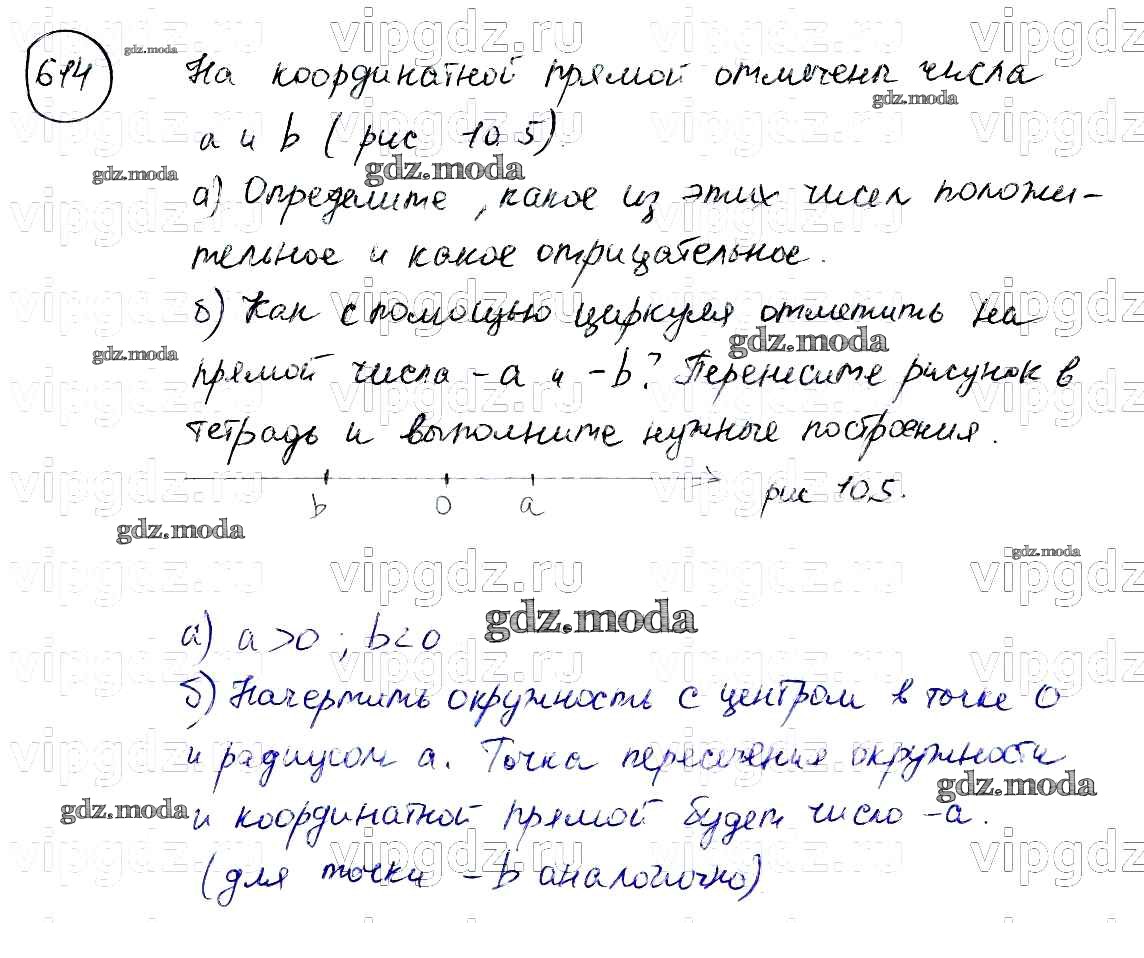 614
На координатной прямой отмечены числа
a и b (рис 10.5).
а) Определите, какое из этих чисел положи-
тельное и какое отрицательное.
б) Как с помощью циркуля отметить на
прямой числа -a и -b? Перенесите рисунок в
тетрадь и выполните нужные построения.
b 0 a
рис 10.5.
а) a>0 ; b<0
б) Начертить окружность с центром в точке 0
и радиусом a. Точка пересечения окружности
и координатной прямой будет число -a.
(для точки -b аналогично)
vipgdz.ru
gdz.moda